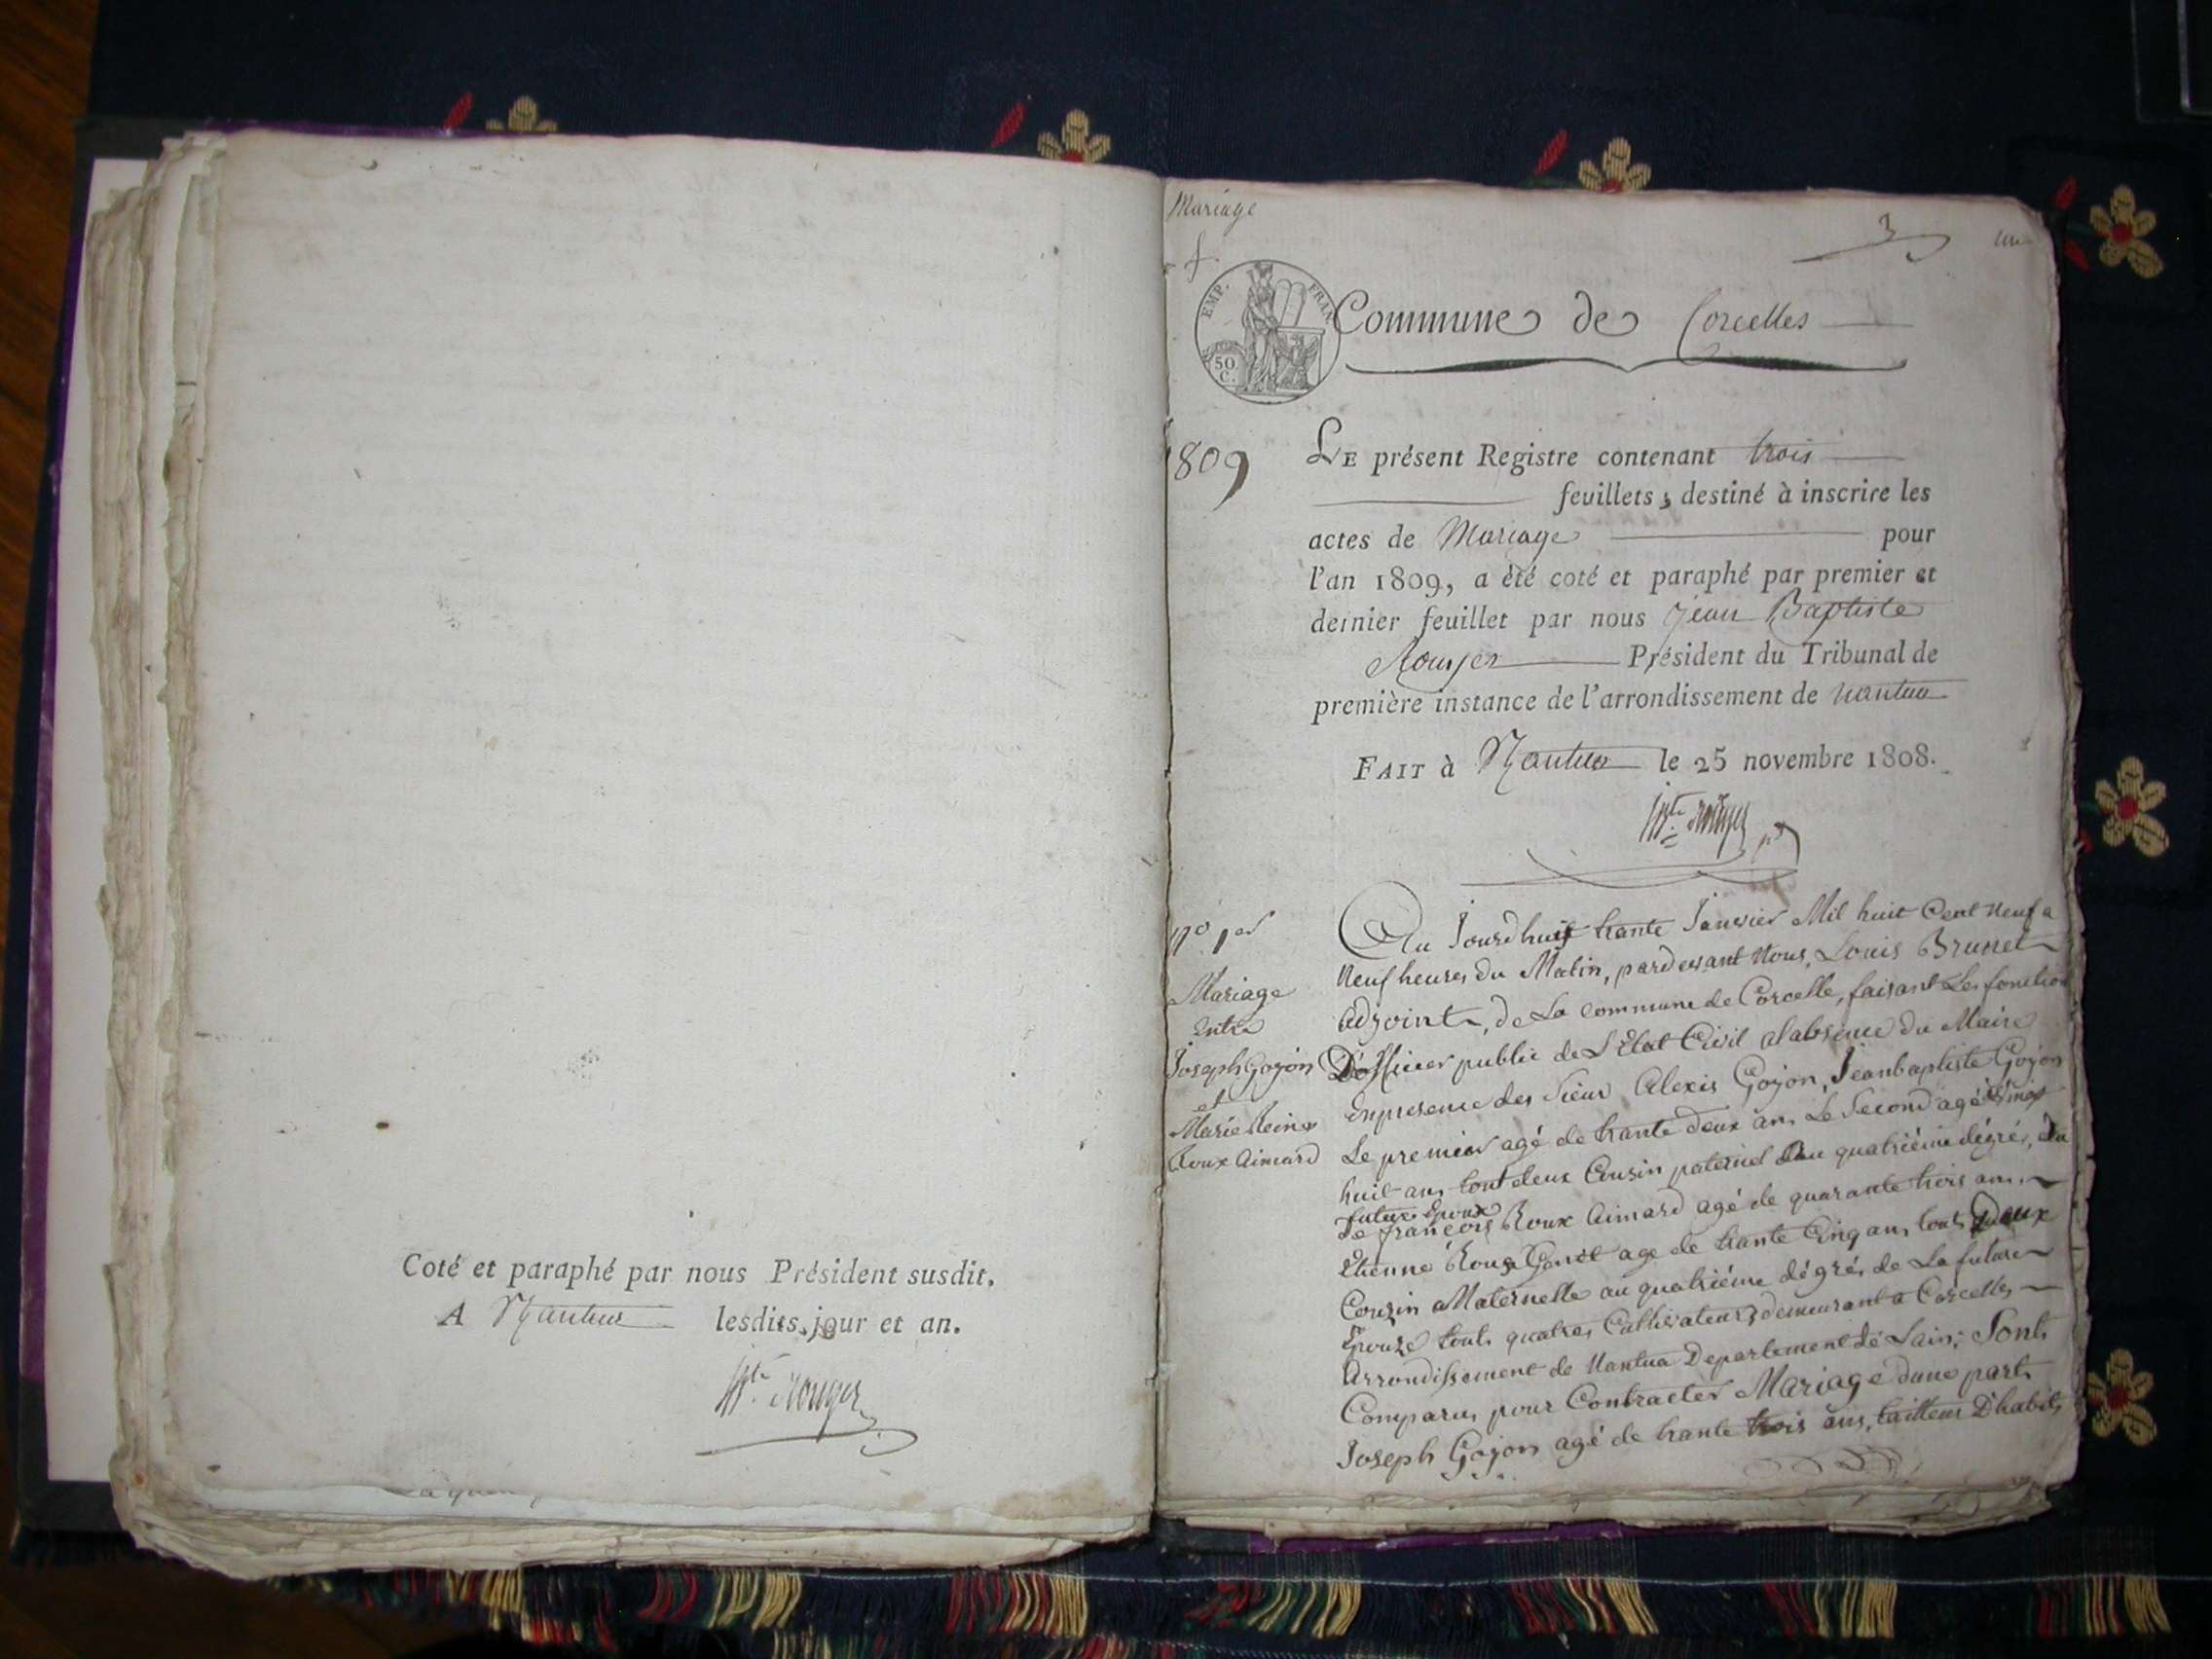 Coté et paraphé par nous Président susdit,
A Nantua lesdits jour et an.
Jⁿ Bte Rouyer
Mariage
3
un
EMP. FRAN.
50
C.
Commune de Corcelles
1809
LE présent Registre contenant trois
feuillets, destiné à inscrire les
actes de Mariage pour
l'an 1809, a été coté et paraphé par premier et
dernier feuillet par nous Jean Baptiste
Rouyer Président du Tribunal de
première instance de l'arrondissement de nantua
FAIT à Nantua le 25 novembre 1808.
nº 1er
Mariage
Entre
Joseph Gojon
et
Marie Reine
Roux Aimard
Au Jourdhuit trante Janvier Mil huit Cent Neuf a
Neuf heures du Matin, pardevant Nous, Louis Brunet
adjoint, de La commune de Corcelle, faisant Les fonction
Dofficier public de L'Etat Civil alabsence du Maire
Enpresence des Sieur Alexis Gojon, Jeanbaptiste Gojon
Le premier agé de trante deux ans Le Second agé vingt
huit ans tout deux Cousin paternel au quatriéme dégrés, du
futur Epoux
De françois Roux Aimard agé de quarante trois ans,
Etienne Roux age de trante Cinq ans tout Deux
Couzin Maternelle au quatriéme dégrés de La future
Epouze touts quatres Cultivateurs demeurant a Corcelles
Arrondissement de Nantua Departement de Lain; Sonts
Comparus pour Contracter Mariage dune part
Joseph Gojon agé de trante trois ans, tailleur D'habits